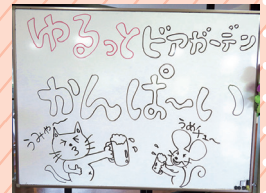 ゆるっとビアガーデン
かんぱ〜い
うみゃ〜
うめチュー